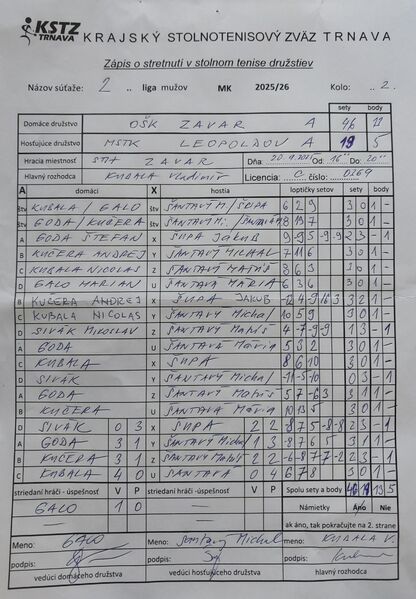 KSTZ TRNAVA KRAJSKÝ STOLNOTENISOVÝ ZVÄZ TRNAVA
Zápis o stretnutí v stolnom tenise družstiev
Názov súťaže: 2 .. liga mužov MK 2025/26 Kolo: .. 2.
sety body
Domáce družstvo OŠK ZAVAR A 46 13
Hosťujúce družstvo MSTK LEOPOLDOV A 19 5
Hracia miestnosť ZAVAR Dňa: Od: 16°° Do: 20°°
Hlavný rozhodca KUBALA Vladimír Licencia: C číslo: 0269
A domáci X hostia loptičky setov sety body
štv KUBALA / GALO štv 6 2 9 3 0 1 -
štv GODA / KUČERA štv 3 0 1 -
A GODA ŠTEFAN X SUPA JAKUB 2 3 - 1
B KUČERA ANDREJ Y ŠANTAVÝ MICHAL 7 11 6 3 0 1 -
C KUBALA NICOLAS Z ŠANTAVÝ 8 6 3 3 0 1 -
D GALO MARIAN U ŠANTAVÁ MÁRIA 6 3 6 3 0 1 -
B KUČERA ANDREJ X ŠUPA JAKUB 3 2 1 -
C KUBALA NICOLAS Y ŠANTAVÝ Michal 10 5 9 3 0 1 -
D SIVÁK MIKOSLAV Z ŠANTAVÝ 4 -7 -9 -9 1 3 - 1
A GODA U ŠANTAVÁ Mária 5 3 2 3 0 1 -
C KUBALA X SUPA 8 6 10 3 0 1 -
D SIVÁK Y ŠANTAVÝ Michal -11 -5 -10 0 3 - 1
A GODA Z ŠANTAVÝ 3 1 1 -
B KUČERA U ŠANTAVÁ Mária 10 13 5 3 0 1 -
D SIVÁK 0 3 X SUPA 2 2 -8 7 5 -8 -8 2 3 - 1
A GODA 3 1 Y ŠANTAVÝ Michal 1 3 -8 7 6 5 3 1 1 -
B KUČERA 3 1 Z ŠANTAVÝ 2 2 -6 -8 7 7 -2 2 3 - 1
C KUBALA 4 0 U ŠANTAVÁ 0 4 6 7 8 3 0 1 -
striedaní hráči - úspešnosť V P striedaní hráči - úspešnosť V P Spolu sety a body 46 19 13 5
GALO 1 0 Námietky Áno Nie
ak áno, tak pokračujte na 2. strane
Meno: GALO meno: Šantavý Michal Meno: KUBALA V.
podpis: podpis: podpis:
vedúci domáceho družstva vedúci hosťujúceho družstva hlavný rozhodca